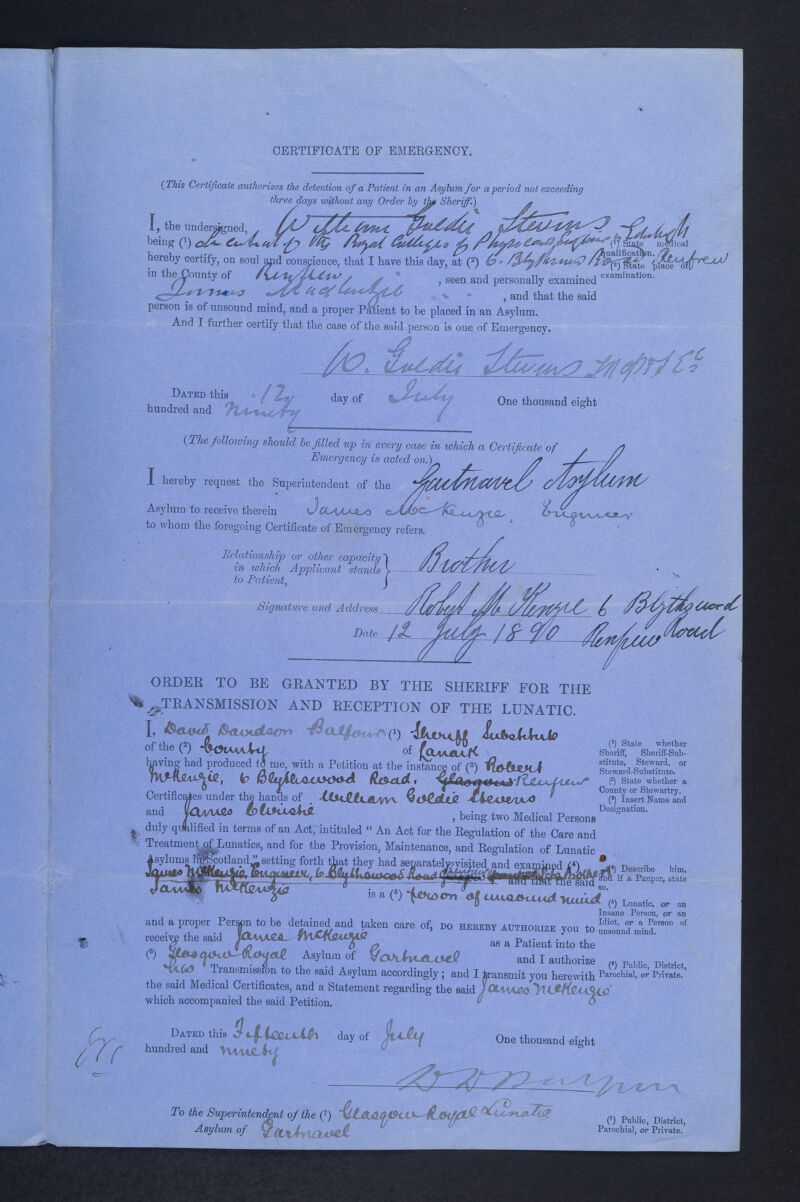 CERTIFICATE OF EMERGENCY.
(This Certificate authorizes the detention of a Patient in an Asylum for a period not exceeding
three days without any Order by the Sheriff.)
I, the undersigned, William Goldie Stevens
being (1) Licentiate of the Royal Colleges of Physicians Edinbgh
(1) State medical
qualification.
hereby certify, on soul and conscience, that I have this day, at (2) 6. Blythswood Road Renfrew
(2) State place of
examination.
in the County of Renfrew, seen and personally examined
James MacKenzie, and that the said
person is of unsound mind, and a proper Patient to be placed in an Asylum.
And I further certify that the case of the said person is one of Emergency.
W. Goldie Stevens
DATED this 12 day of July One thousand eight
hundred and ninety
(The following should be filled up in every case in which a Certificate of
Emergency is acted on.)
I hereby request the Superintendent of the Gartnavel Asylum
Asylum to receive therein James McKenzie, Engineer
to whom the foregoing Certificate of Emergency refers.
Relationship or other capacity
in which Applicant stands
to Patient,
Brother
Signature and Address Robert McKenzie 6 Blythswood
Road
Date 12 July 1890 Renfrew
ORDER TO BE GRANTED BY THE SHERIFF FOR THE
TRANSMISSION AND RECEPTION OF THE LUNATIC.
I, David Davidson Balfour (1) Sheriff Substitute
of the (2) County of Lanark
having had produced to me, with a Petition at the instance of (3) Robert
McKenzie, 6 Blythswood Road, Glasgow Renfrew
Certificates under the hands of William Goldie Stevens
and James Christie, being two Medical Persons
duly qualified in terms of an Act, intituled "An Act for the Regulation of the Care and
Treatment of Lunatics, and for the Provision, Maintenance, and Regulation of Lunatic
Asylums in Scotland," setting forth that they had separately visited and examined (4)
James McKenzie, Engineer, 6 Blythswood Road
and that the said
James McKenzie is a (5) person of unsound mind
and a proper Person to be detained and taken care of, DO HEREBY AUTHORIZE you to
receive the said James McKenzie as a Patient into the
(6) Glasgow Royal Asylum of Gartnavel and I authorize
his Transmission to the said Asylum accordingly; and I transmit you herewith
the said Medical Certificates, and a Statement regarding the said James McKenzie
which accompanied the said Petition.
(1) State whether
Sheriff, Sheriff-Sub-
stitute, Steward, or
Steward-Substitute.
(2) State whether a
County or Stewartry.
(3) Insert Name and
Designation.
(4) Describe him,
and if a Pauper, state
so.
(5) Lunatic, or an
Insane Person, or an
Idiot, or a Person of
unsound mind.
(6) Public, District,
Parochial, or Private.
DATED this Fifteenth day of July One thousand eight
hundred and ninety
D D Balfour
To the Superintendent of the (7) Glasgow Royal Lunatic
Asylum of Gartnavel
(7) Public, District,
Parochial, or Private.